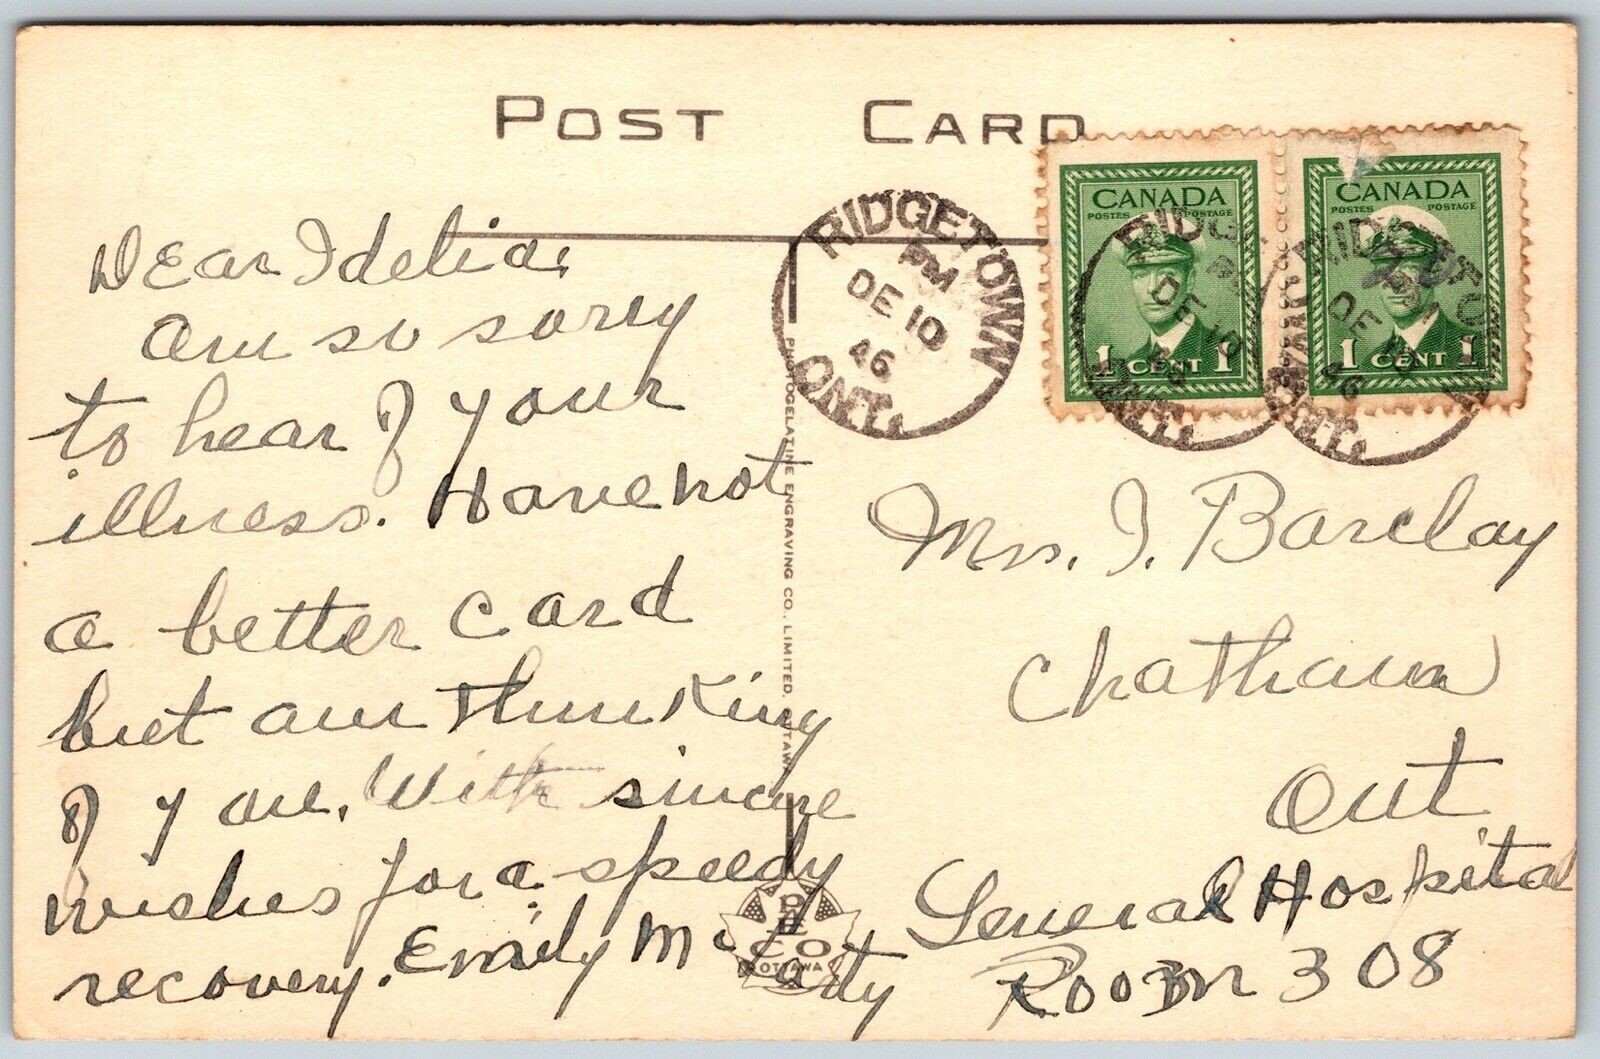 POST CARD
Dear Idelia,
Am so sorry
to hear of your
illness. Have not
a better card
but am thinking
of you. With sincere
wishes for a speedy
recovery. Emily McCarty
PHOTOGELATINE ENGRAVING CO., LIMITED, OTTAWA
PECO
OTTAWA
RIDGETOWN
PM
DE 10
46
ONT.
CANADA
POSTES POSTAGE
1 CENT 1
RIDGETOWN
DE 10
46
ONT.
CANADA
POSTES POSTAGE
1 CENT 1
RIDGETOWN
PM
DE 10
46
ONT.
Mrs. I. Barclay
Chatham
Ont
General Hospital
Room 308